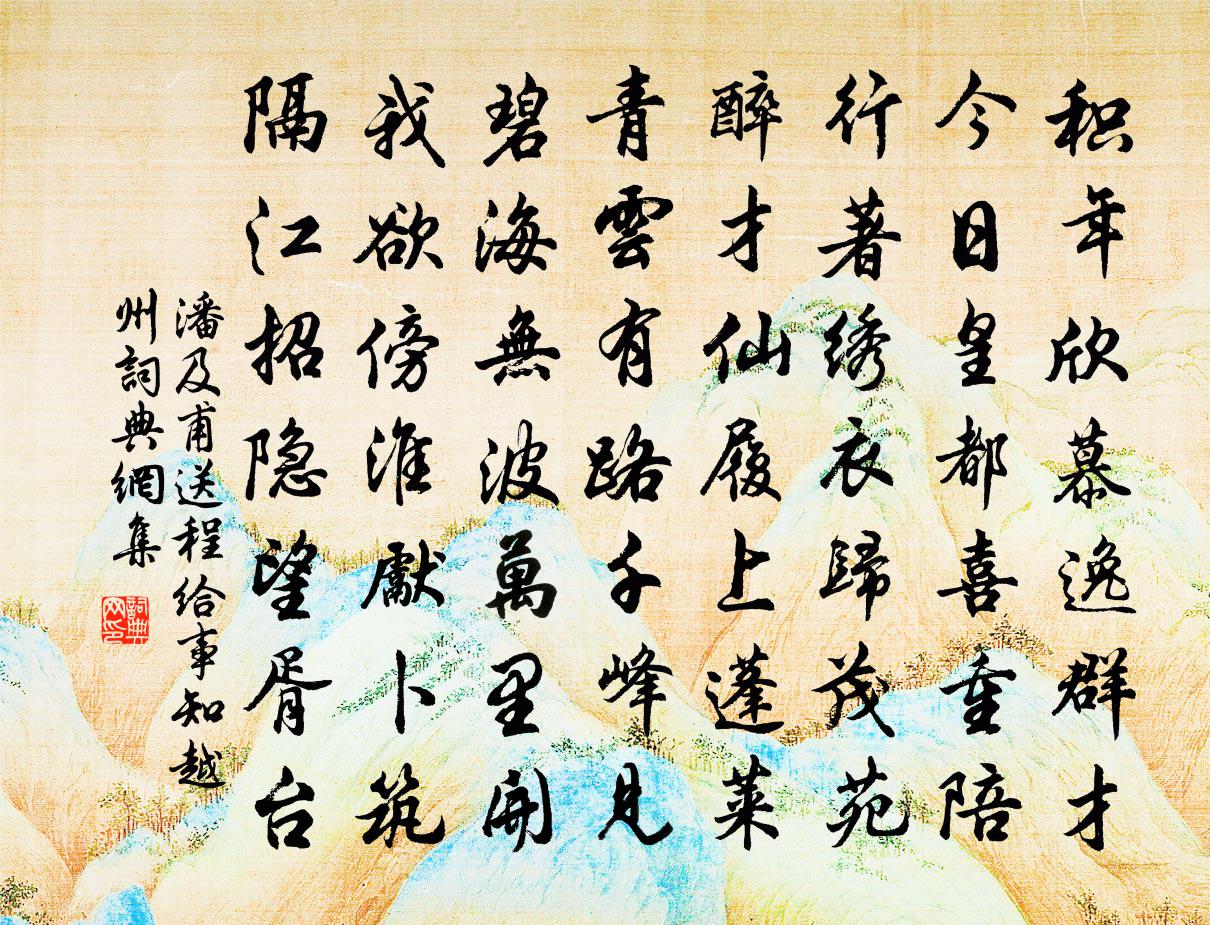 积年欣慕逸群才
今日皇都喜重陪
行著绣衣歸茂苑
醉才仙履上蓬莱
青雲有路千峰見
碧海無波萬里開
我欲傍淮獻卜筑
隔江招隐望胥台
潘及甫送程给事知越
州詞典網集
詞典
网印